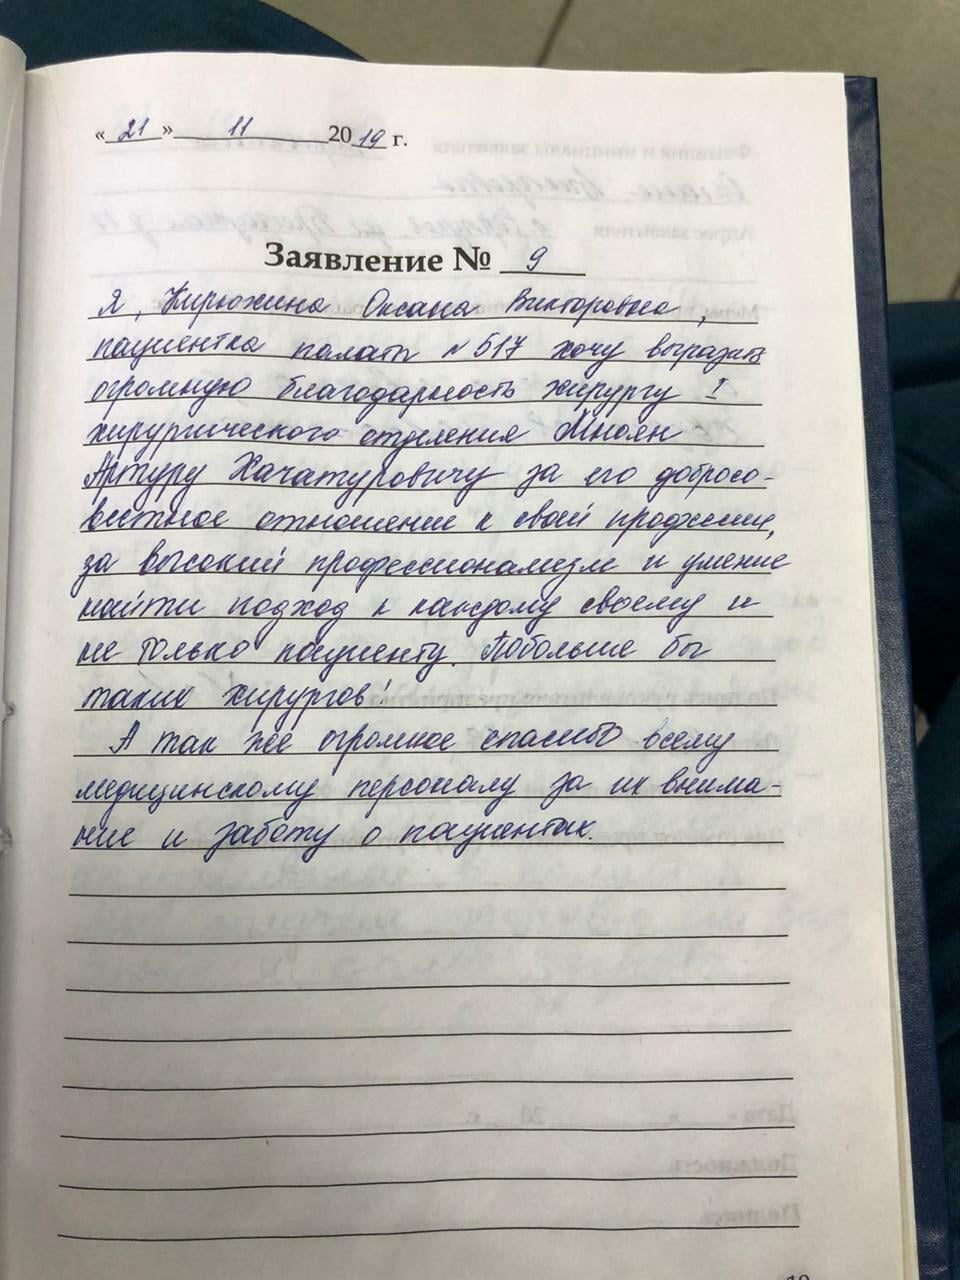 « 21 » 11 2019 г.
Заявление № 9
Я, Кирюхина Оксана Викторовна,
пациентка палаты №517 хочу выразить
огромную благодарность хирургу I
хирургического отделения Мноян
Артуру Хачатуровичу за его добросо-
вестное отношение к своей профессии,
за высокий профессионализм и умение
найти подход к каждому своему и
не только пациенту. Побольше бы
таких хирургов!
А так же огромное спасибо всему
медицинскому персоналу за их внима-
ние и заботу о пациентах.